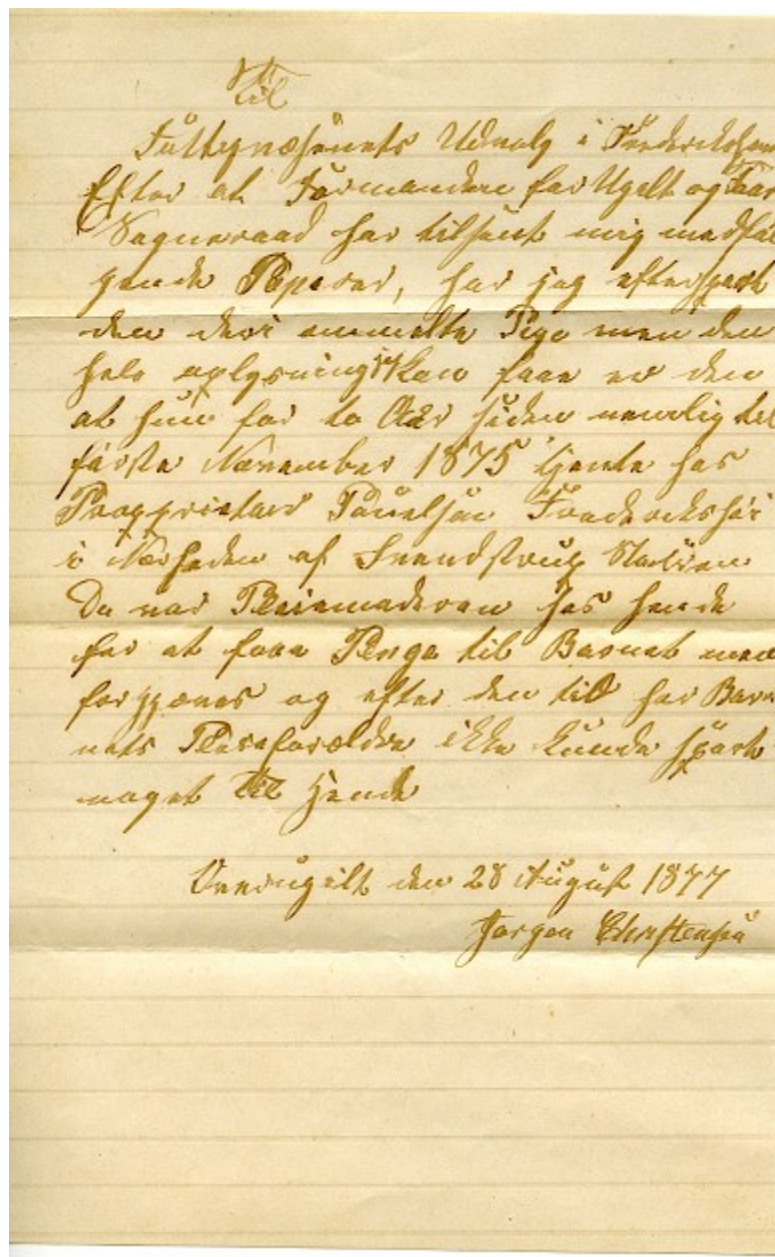 Til
Fattigvæsenets Udvalg i Frederickshavn
Efter at Formanden for Ugelt og Taars
Sogneraad har tilsent mig medføl
gende Papirer, har jeg efterspørt
den deri ommelte Pige men den
hele oplysning jeg kan faae er den
at hun for to Aar siden nemlig til
første November 1875 tjente hos
Propprietær Poulsen
i Nærheden af Svendstrup Station
Da var Pleiemoderen hos hende
for at faae Penge til Barnet men
forgjæves og efter den tid har Bar
nets Pleieforældre ikke kunde spørt
noget til hende
den 28 August 1877
Jørgen Christensen